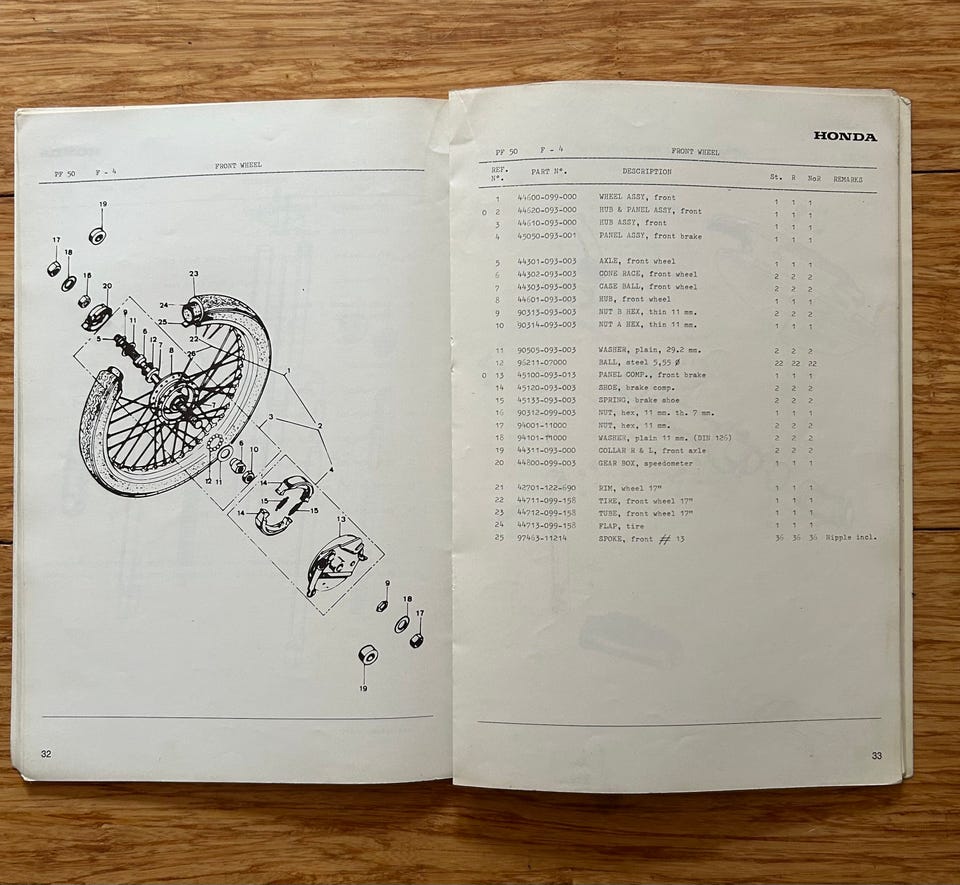 PF 50 F - 4 FRONT WHEEL
19
17
18
16
20
23
24
25
22
9
11
5
6
12
7
8
26
1
7
3
2
6
10
4
12
11
14
15
14
15
13
9
18
17
19
32
HONDA
PF 50 F - 4 FRONT WHEEL
REF. N°. PART N°. DESCRIPTION St. R NoR REMARKS
1 44600-099-000 WHEEL ASSY, front 1 1 1
O 2 44620-093-000 HUB & PANEL ASSY, front 1 1 1
3 44610-093-000 HUB ASSY, front 1 1 1
4 45050-093-001 PANEL ASSY, front brake 1 1 1
5 44301-093-003 AXLE, front wheel 1 1 1
6 44302-093-003 CONE RACE, front wheel 2 2 2
7 44303-093-003 CASE BALL, front wheel 2 2 2
8 44601-093-003 HUB, front wheel 1 1 1
9 90313-093-003 NUT B HEX, thin 11 mm. 2 2 2
10 90314-093-003 NUT A HEX, thin 11 mm. 1 1 1
11 90505-093-003 WASHER, plain, 29.2 mm. 2 2 2
12 96211-07000 BALL, steel 5,55 Ø 22 22 22
O 13 45100-093-013 PANEL COMP., front brake 1 1 1
14 45120-093-003 SHOE, brake comp. 2 2 2
15 45133-093-003 SPRING, brake shoe 2 2 2
16 90312-099-003 NUT, hex, 11 mm. th. 7 mm. 1 1 1
17 94001-11000 NUT, hex, 11 mm. 2 2 2
18 94101-11000 WASHER, plain 11 mm. (DIN 126) 2 2 2
19 44311-093-000 COLLAR R & L, front axle 2 2 2
20 44800-099-003 GEAR BOX, speedometer 1 1 1
21 42701-122-690 RIM, wheel 17" 1 1 1
22 44711-099-158 TIRE, front wheel 17" 1 1 1
23 44712-099-158 TUBE, front wheel 17" 1 1 1
24 44713-099-158 FLAP, tire 1 1 1
25 97463-11214 SPOKE, front # 13 36 36 36 Nipple incl.
33